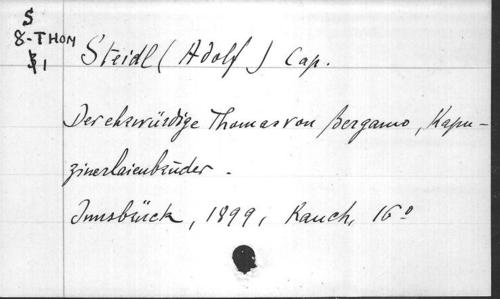 S
8-THOM
1
Steidl (Adolf) Cap.
Der ehrwürdige Thomas von Bergamo, Kapu-
zinerlaienbruder.
Innsbruck, 1899, Rauch, 16°